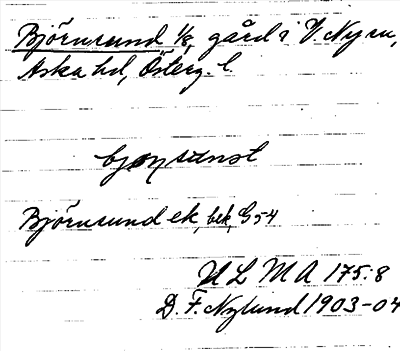 Björnsund 1/8, gård i V Ny sn,
Aska hd, Österg. l.
Björnsund ek, bek, G 54
ULMA 175:8
D. F. Nylund 1903-04